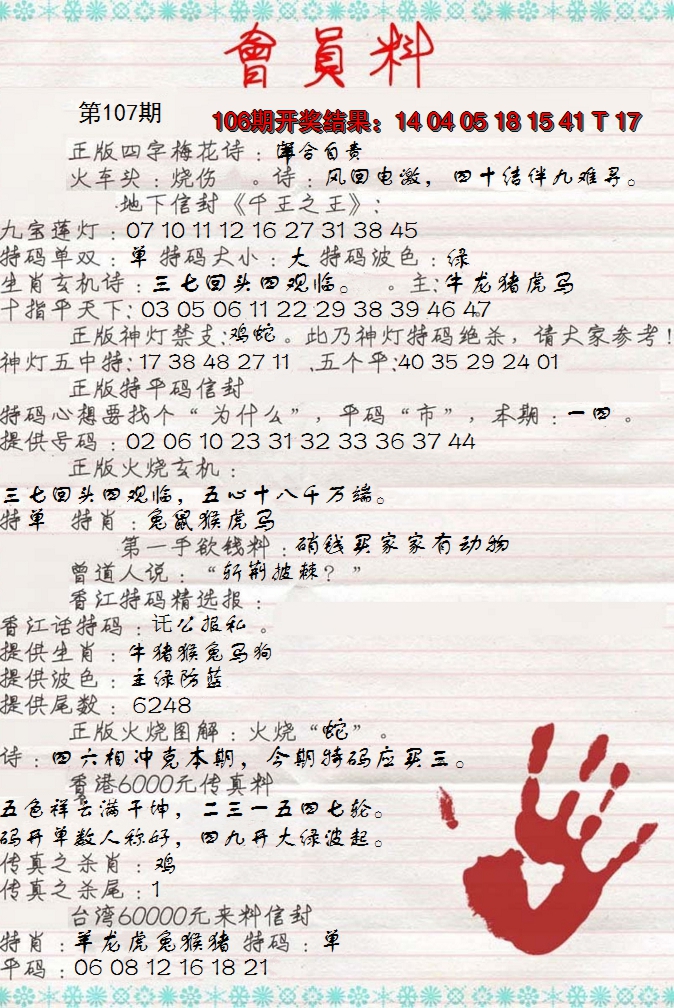 會員料
第107期
106期开奖结果：14 04 05 18 15 41 T 17
正版四字梅花诗：合自贵
火车头：烧伤 。诗：风回电激，四十结伴九难寻。
地下信封《千王之王》：
九宝莲灯：07 10 11 12 16 27 31 38 45
特码单双：单 特码大小：大 特码波色：绿
生肖玄机诗：三七回头四观临。 。主：牛龙猪虎马
十指平天下：03 05 06 11 22 29 38 39 46 47
正版神灯禁支：鸡蛇。此乃神灯特码绝杀，请大家参考！
神灯五中特：17 38 48 27 11 、五个平：40 35 29 24 01
正版特平码信封
特码心想要找个“为什么”，平码“市”，本期：一四。
提供号码：02 06 10 23 31 32 33 36 37 44
正版火烧玄机：
三七回头四观临，五心十八千万端。
特单 特肖：兔鼠猴虎马
第一手欲钱料：硝钱买家家有动物
曾道人说：“斩荆披棘？”
香江特码精选报：
香江话特码：讬公报私。
提供生肖：牛猪猴兔马狗
提供波色：主绿防蓝
提供尾数：6248
正版火烧图解：火烧“蛇”。
诗：四六相冲克本期，今期特码应买三。
香港6000元传真料
五色祥云满干坤，二三一五四七轮。
码开单数人称好，四九开大绿波起。
传真之杀肖：鸡
传真之杀尾：1
台湾60000元来料信封
特肖：羊龙虎兔猴猪 特码：单
平码：06 08 12 16 18 21